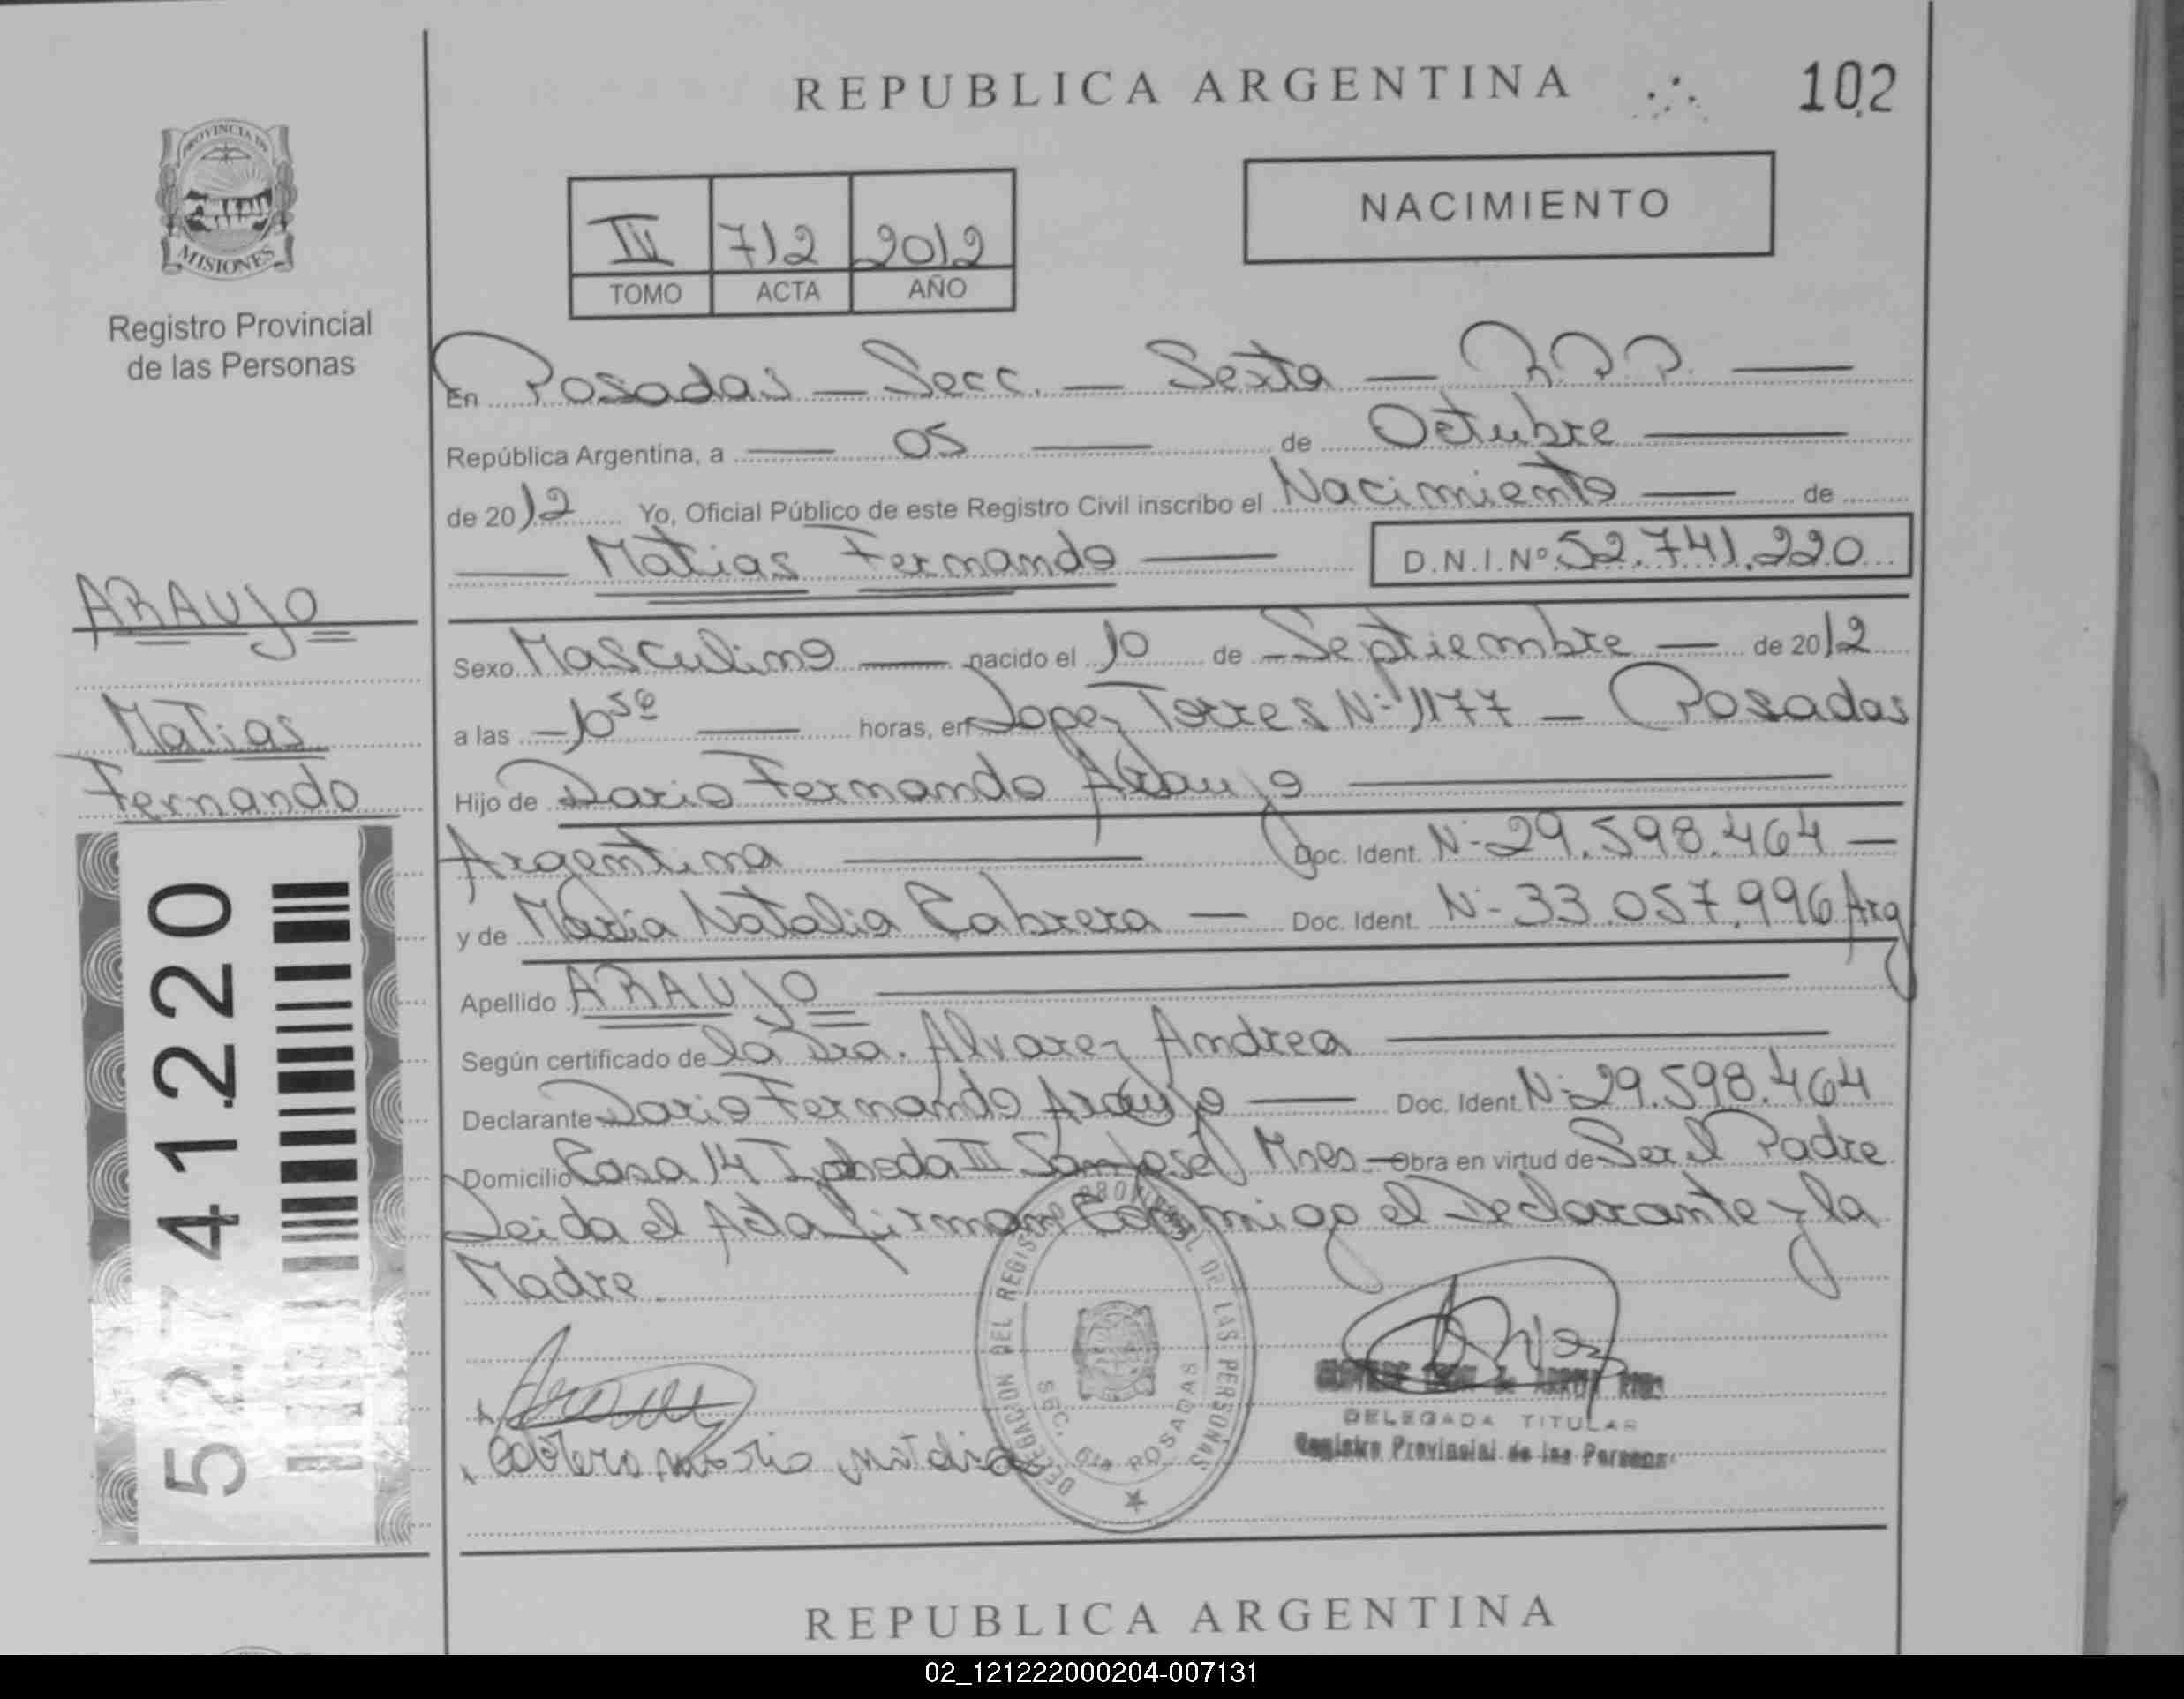 REPUBLICA ARGENTINA
102
PROVINCIA DE
MISIONES
Registro Provincial
de las Personas
III 712 2012
TOMO ACTA AÑO
NACIMIENTO
En Posadas — Secc. — Sexta — R.P.P. —
República Argentina, a — 05 — de Octubre —
de 2012 Yo, Oficial Público de este Registro Civil inscribo el Nacimiento — de
— Matias Fernando — D.N.I.Nº 52.741.220
ARAUJO
Matias
Fernando
52741220
Sexo Masculino — nacido el 10 de — Septiembre — de 2012
a las — 10 50 — horas, en Lopez Torres Nº 1177 — Posadas
Hijo de Dario Fernando Araujo
Argentina — Doc. Ident. Nº 29.598.464 —
y de Maria Natalia Cabrera — Doc. Ident. Nº 33.057.996 Arg
Apellido ARAUJO
Según certificado de la Dra. Alvarez Andrea
Declarante Dario Fernando Araujo — Doc. Ident. Nº 29.598.464
Domicilio Casa 14 III San José Mnes — Obra en virtud de Ser el Padre
Leida el Acta firman Conmigo el Declarante y la
Madre.
DELEGACION DEL REGISTRO PROVINCIAL DE LAS PERSONAS
SEC. 6ta POSADAS
DELEGADA TITULAR
Registro Provincial de las Personas
Cabrera maria natalia
REPUBLICA ARGENTINA
02_121222000204-007131